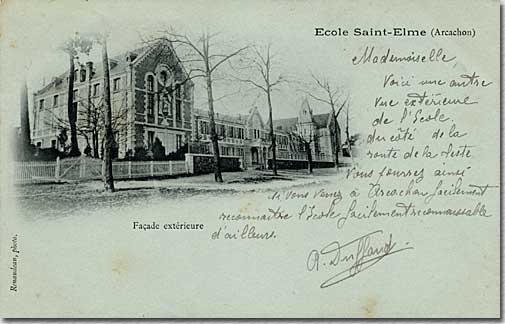 Ecole Saint-Elme (Arcachon)
Mademoiselle,
Voici une autre
vue extérieure
de l'Ecole.
du côté de la
route de la Teste.
Vous pourrez ainsi
si vous venez à Arcachon facilement
reconnaître l'Ecole facilement reconnaissable
d'ailleurs.
A. Duffand
Façade extérieure
Renaudeau, photo.